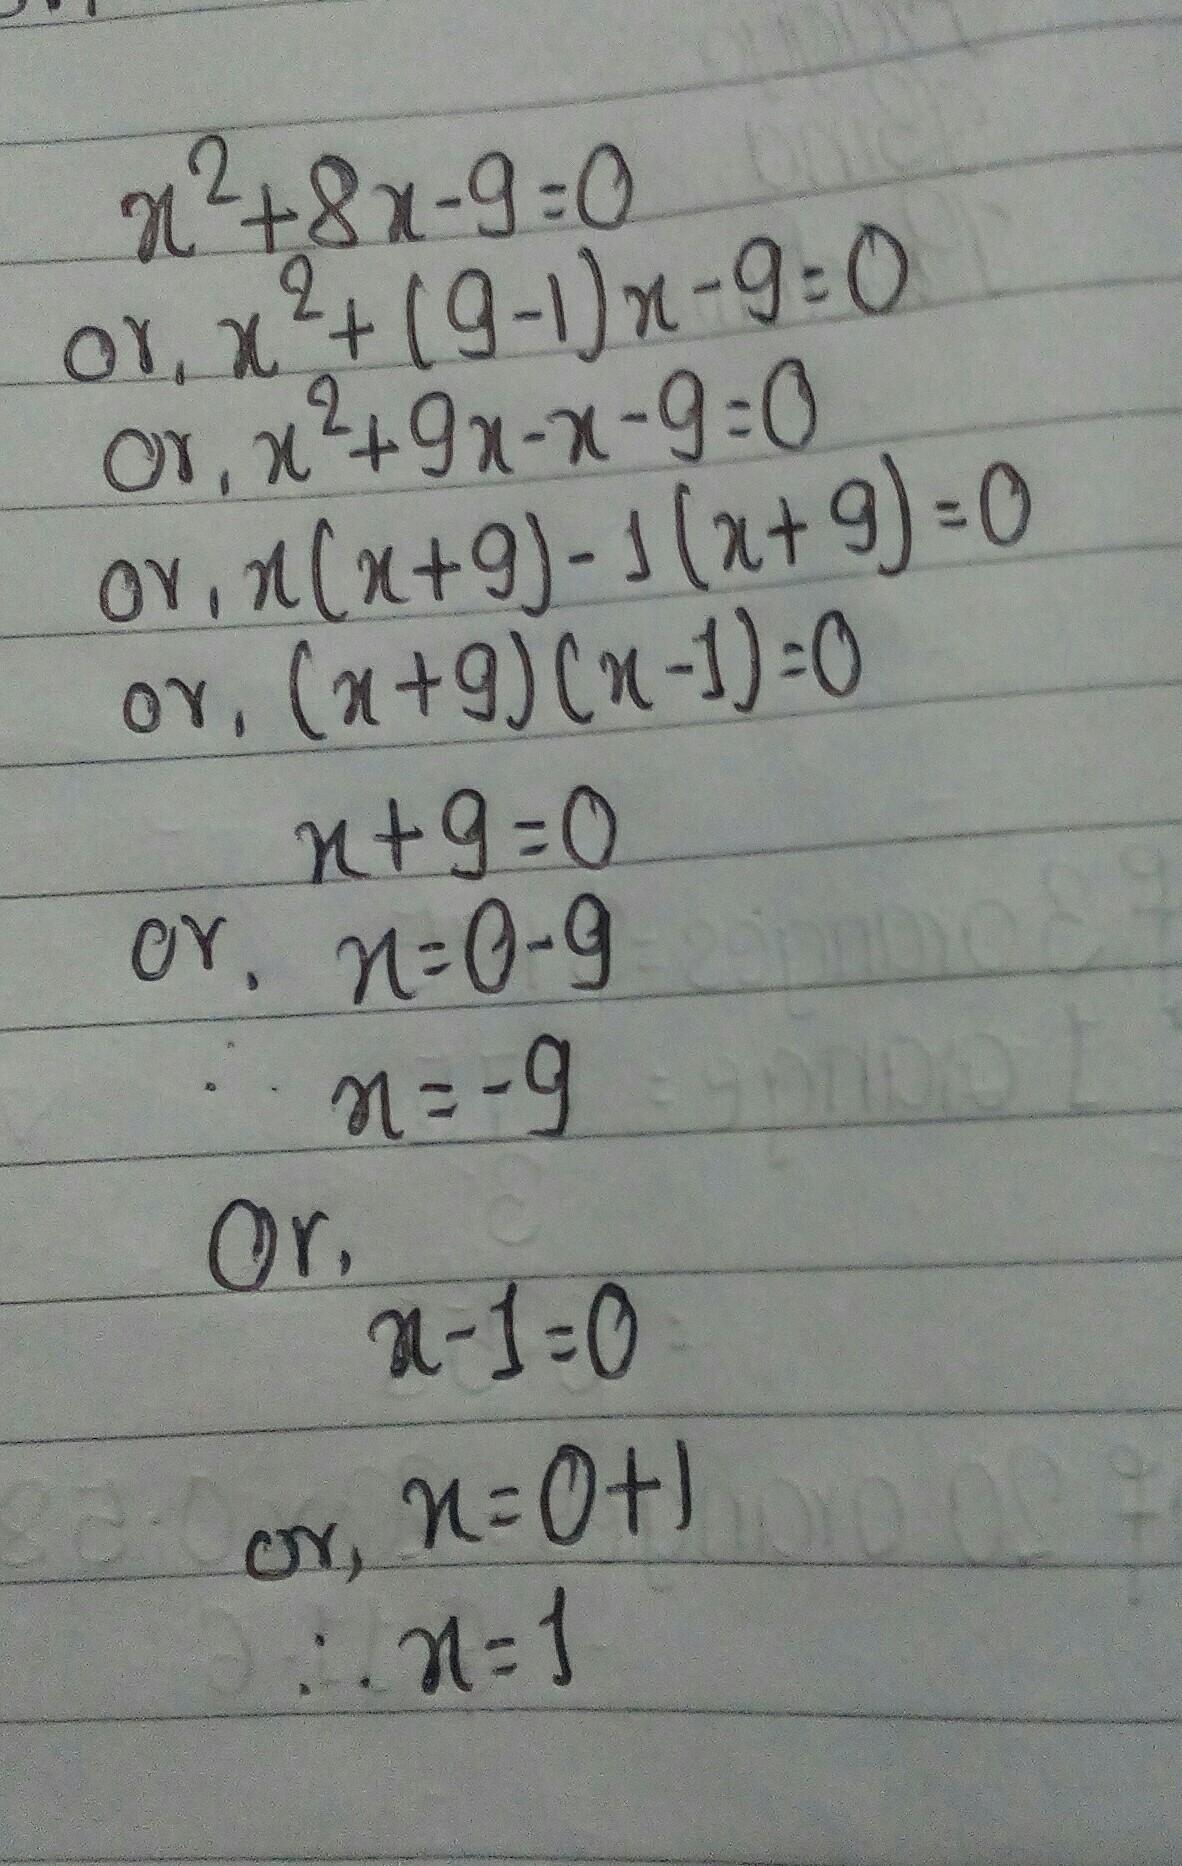 x²+8x-9=0
or, x²+(9-1)x-9=0
or, x²+9x-x-9=0
or, x(x+9)-1(x+9)=0
or, (x+9)(x-1)=0
x+9=0
or, x=0-9
∴ x=-9
Or,
x-1=0
or, x=0+1
∴ x=1